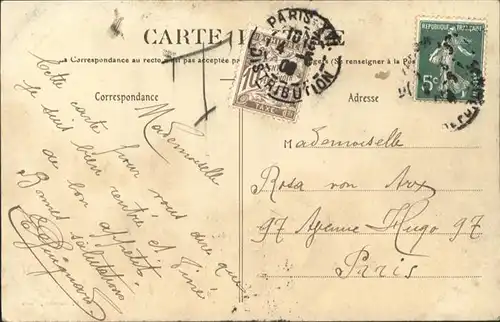 CARTE POSTALE
La Correspondance au recto n'est pas acceptée par (Se renseigner à la Poste)
Correspondance
Adresse
PARIS XVI
DISTRIBUTION
10
TAXE
REPUBLIQUE FRANÇAISE
5c
Mademoiselle
Cette carte pour vous dire que
je suis bien rentré et diné
de bon appetit
Bonnes salutations
Mademoiselle
Rosa von Arx
97 Avenue Hugo 97
Paris